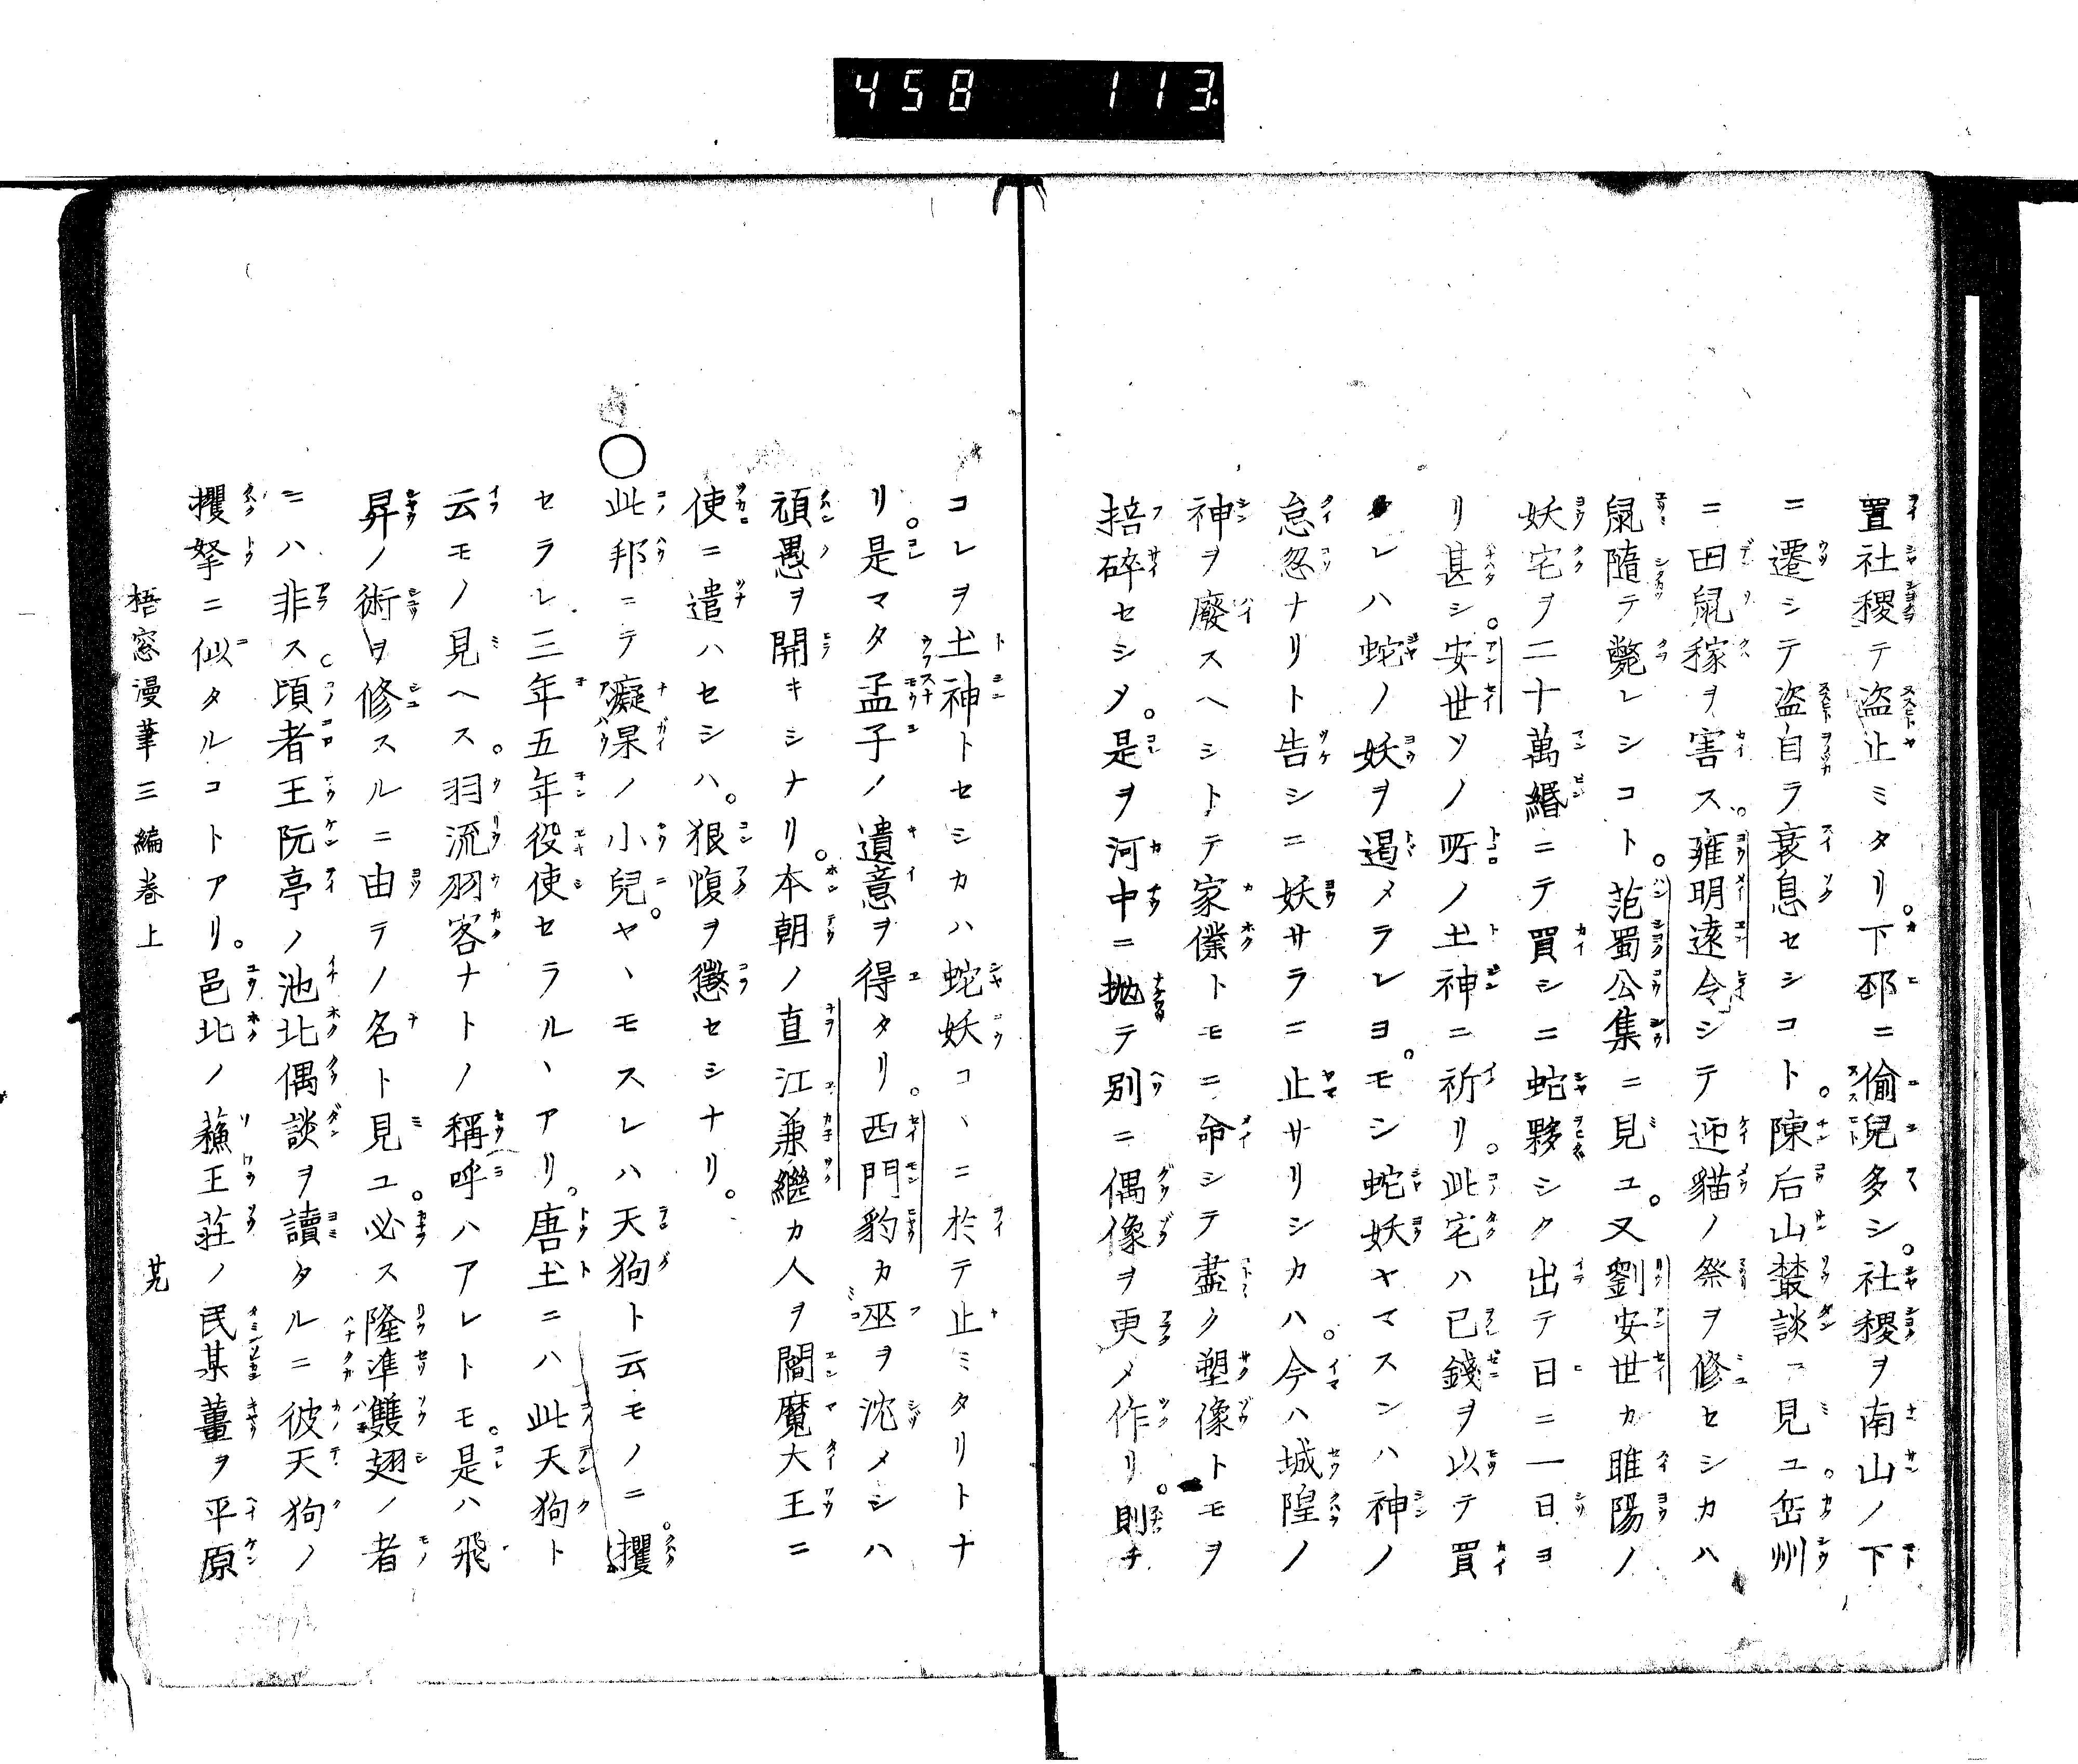 458 113
置社稷テ盗止ミタリ。下邳ニ偷兒多シ。社稷ヲ南山ノ下
ニ遷シテ盗自ラ衰息セシコト。陳后山叢談ニ見ユ。岳州
ニ田鼠稼ヲ害ス。雍明遠令シテ迎貓ノ祭ヲ修セシカハ
鼠隨テ斃レシコト。范蜀公集ニ見ユ。又劉安世カ雎陽ノ
妖宅ヲ二十萬緡ニテ買シニ蛇夥シク出テ日ニ一日ヨ
リ甚シ。安世ソノ所ノ土神ニ祈リ。此宅ハ已錢ヲ以テ買
レハ蛇ノ妖ヲ遏メラレヨ。モシ蛇妖ヤマスンハ神ノ
怠忽ナリト告シニ妖サラニ止サリシカハ。今ハ城隍ノ
神ヲ廢スヘシトテ家僕トモニ命シテ盡ク塑像トモヲ
掊碎セシメ。是ヲ河中ニ抛テ別ニ偶像ヲ更メ作リ。則チ
コレヲ土神トセシカハ蛇妖コヽニ於テ止ミタリトナ
リ。是マタ孟子ノ遺意ヲ得タリ。西門豹カ巫ヲ沈メシハ
頑愚ヲ開キシナリ。本朝ノ直江兼繼カ人ヲ閻魔大王ニ
使ニ遣ハセシハ。狠愎ヲ懲セシナリ。
○此邦ニテ癡呆ノ小兒。ヤヽモスレハ天狗ト云モノニ。攫
セラレ三年五年役使セラルヽアリ。唐土ニハ此天狗ト
云モノ見ヘス。羽流羽客ナトノ稱呼ハアレトモ。是ハ飛
昇ノ術ヲ修スルニ由テノ名ト見ユ。必ス隆準雙翅ノ者
ニハ非ス。頃者王阮亭ノ池北偶談ヲ讀タルニ彼天狗ノ
攫拏ニ似タルコトアリ。邑北ノ蘓王荘ノ民某董ヲ平原
梧窓漫筆三編巻上